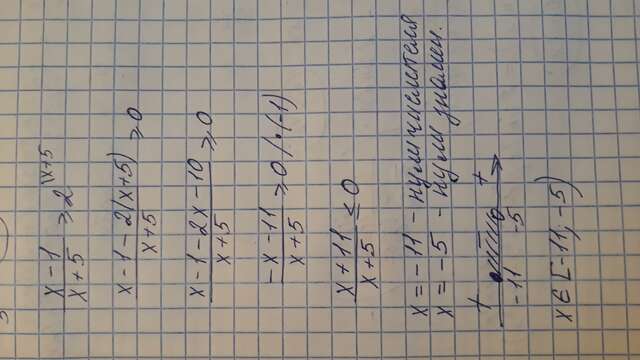 x-1/x+5 ≥ 2 \x+5
x-1-2(x+5)/x+5 ≥ 0
x-1-2x-10/x+5 ≥ 0
-x-11/x+5 ≥ 0 /·(-1)
x+11/x+5 ≤ 0
x = -11 - нули числителя
x = -5 - нули знамен.
+ - +
-11 -5
x ∈ [-11; -5)